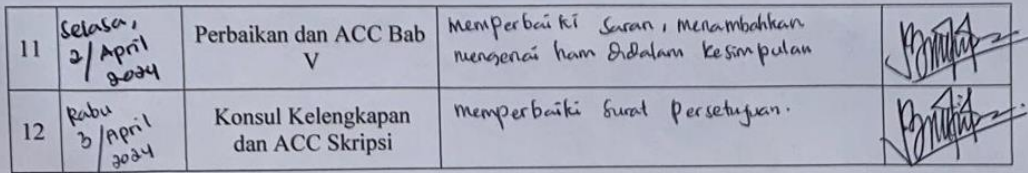 11
Selasa,
2/April
2024
Perbaikan dan ACC Bab
V
memperbaiki Saran, menambahkan
mengenai ham didalam kesimpulan
12
Rabu
3/April
2024
Konsul Kelengkapan
dan ACC Skripsi
memperbaiki Surat Persetujuan.